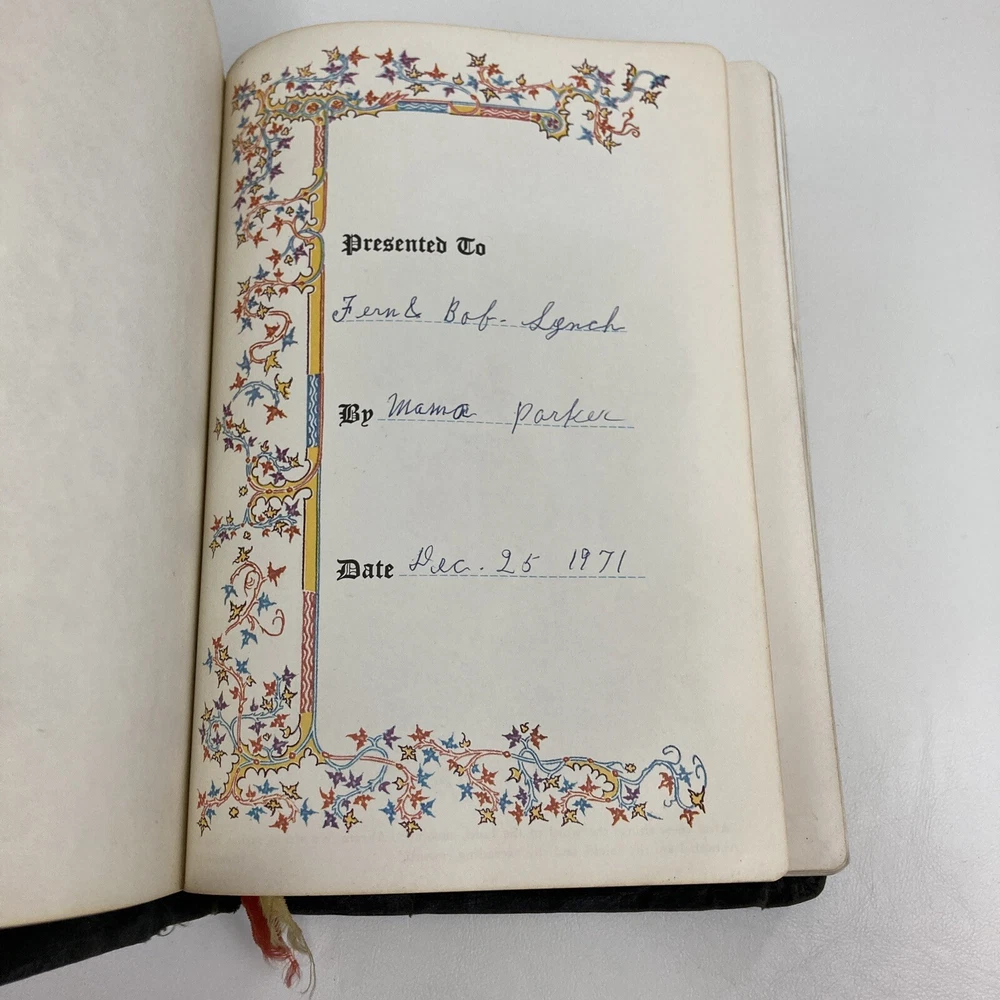 Presented To
Fern & Bob - Lynch
By Mama Parker
Date Dec. 25 1971